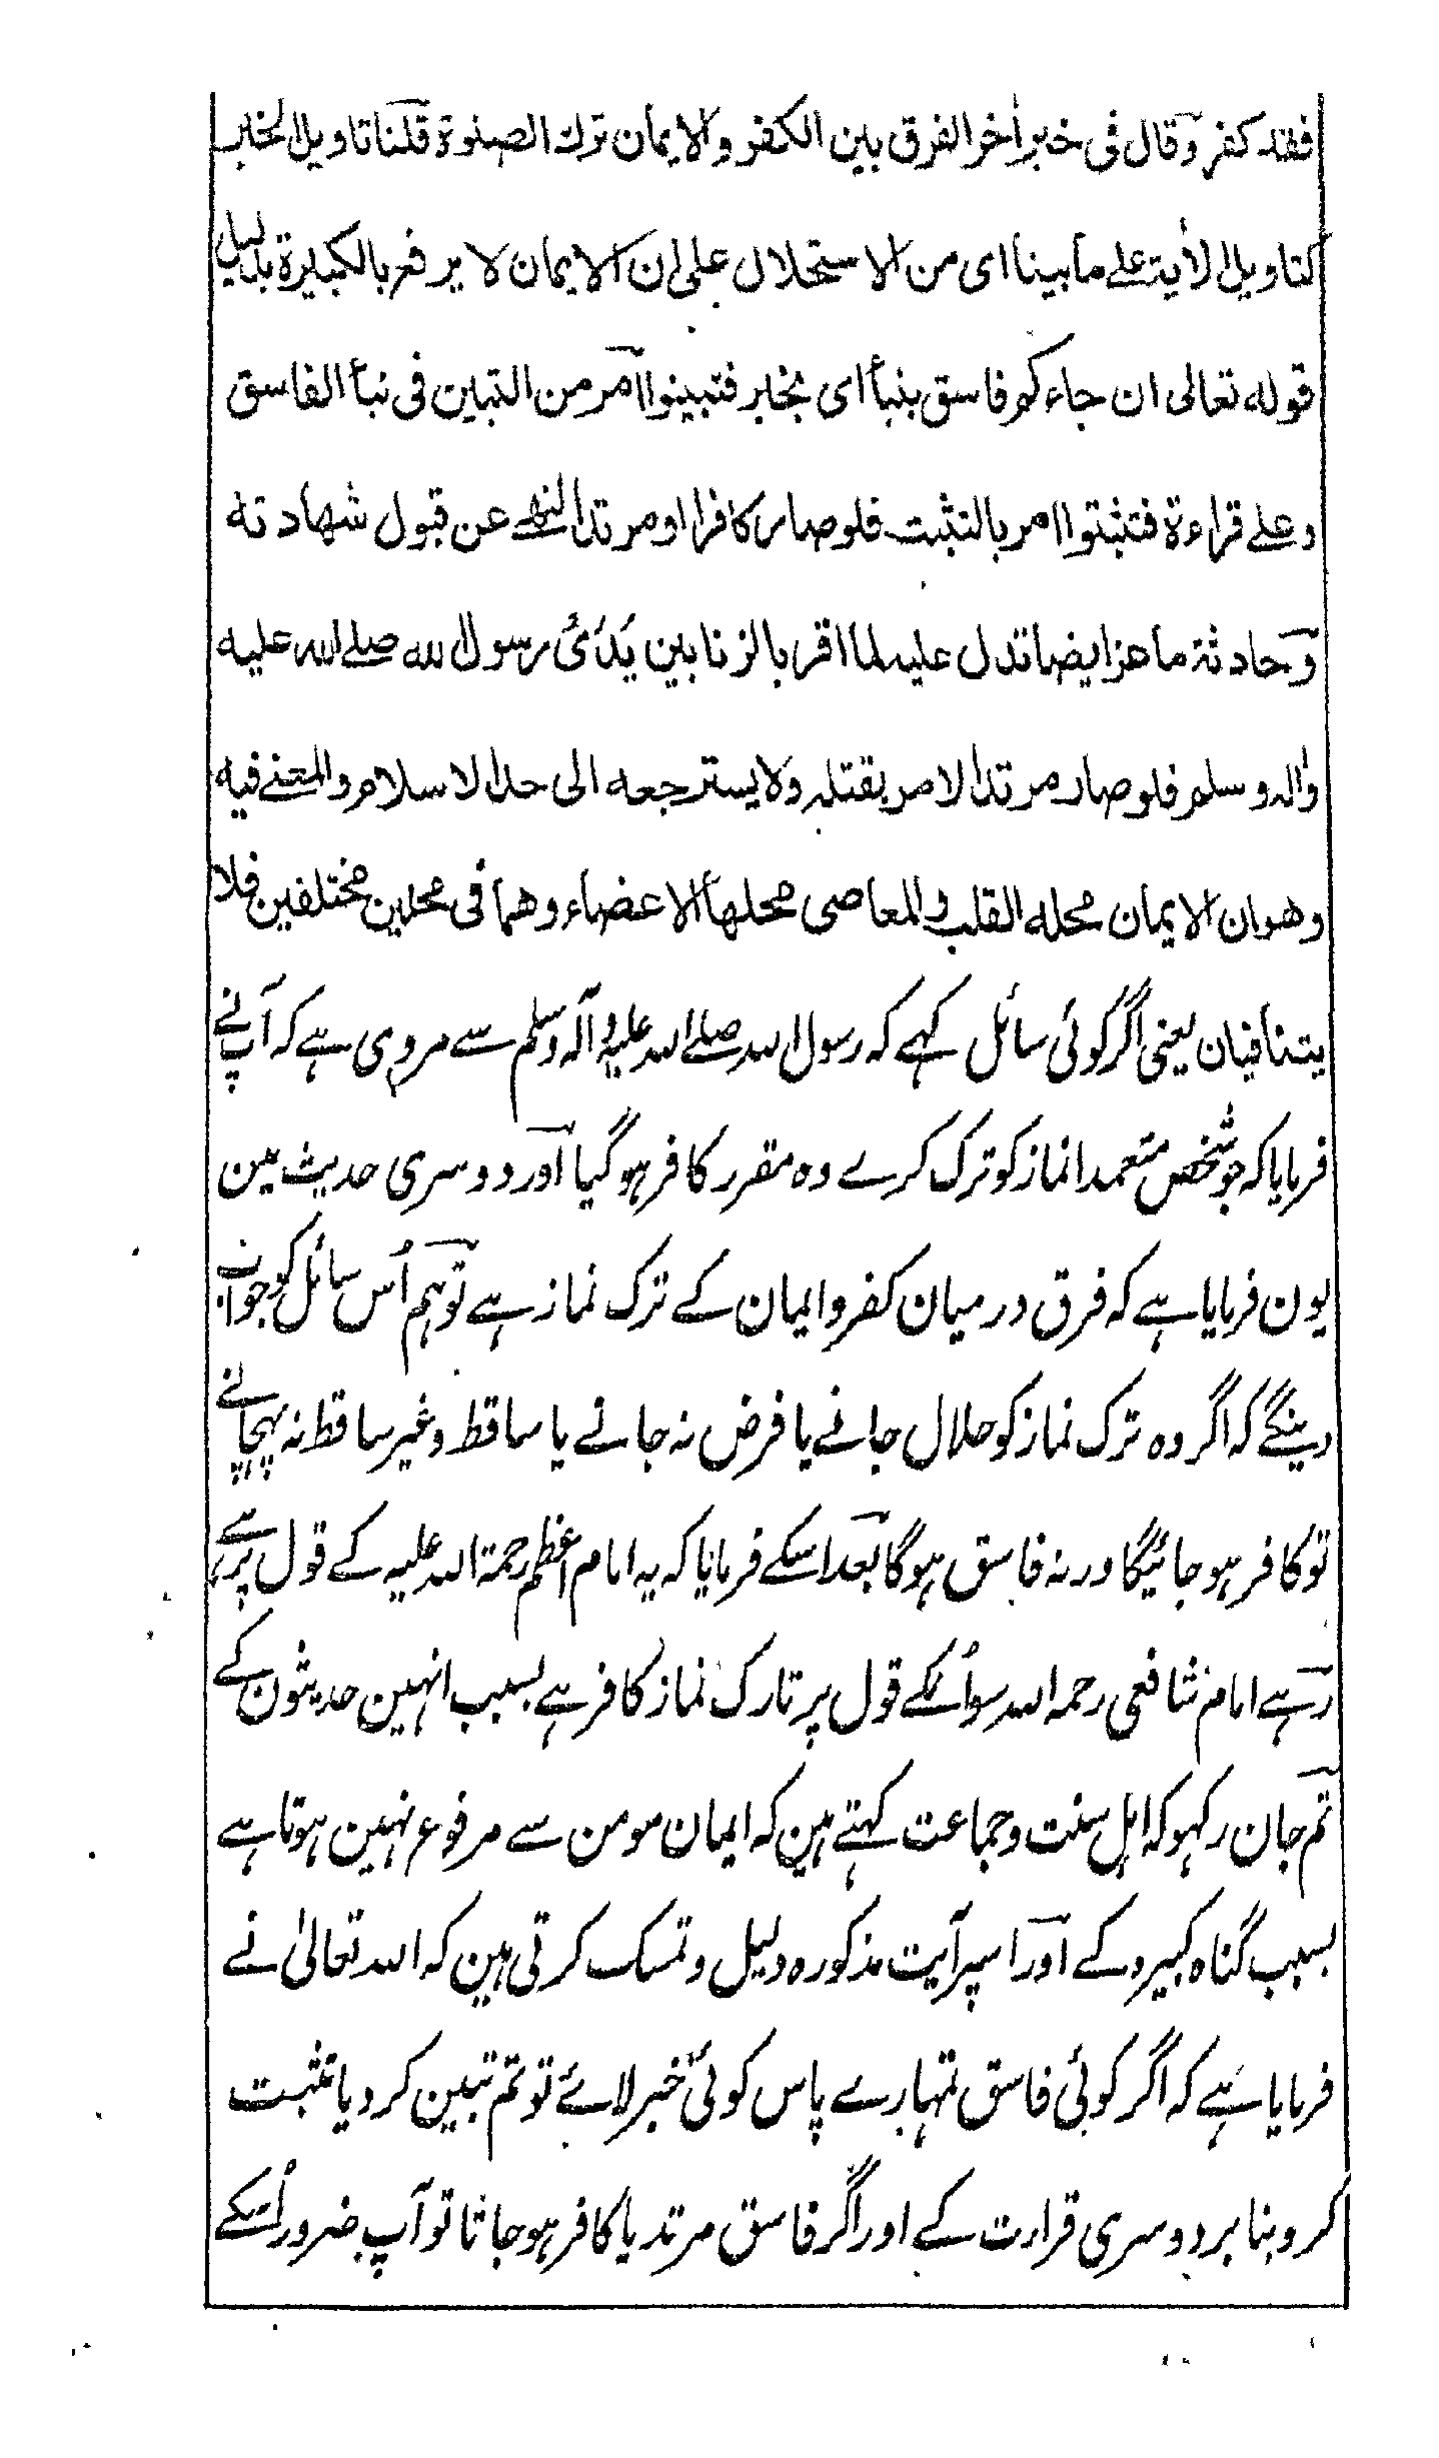 فقد كفر وقال فی خبر أخر الفرق بين الكفر والايمان ترك الصلوة قلنا تاويل الخبر
كتاويل الأية علے ما بينا ای من الاستحلال علی ان الايمان لا يرفع بالكبيرة بدليل
قوله تعالی ان جاءكم فاسق بنبأ ای بخبر فتبينوا امر من التبين فی نبأ الفاسق
وعلے قراءة فتثبتوا امر بالتثبت فلو صار كافرا او مرتدا لنهے عن قبول شهادته
وحادثة ماعز ايضا تدل عليه لما اقر بالزنا بين يدی رسول الله صلے الله عليه
واله وسلم فلو صار مرتدا لامر بقتله ولا يسترجعه الی حد الاسلام والمعنے فيه
وهو ان الايمان محله القلب والمعاصی محلها الاعضاء وهما فی محلين مختلفين فلا
يتنافيان یعنی اگر کوئی سائل کہے کہ رسول اللہ صلے اللہ علیہ و آلہ وسلم سے مروی ہے کہ آپ نے
فرمایا کہ جو شخص متعمدا نماز کو ترک کرے وہ مقرر کافر ہوگیا اور دوسری حدیث مین
یون فرمایا ہے کہ فرق درمیان کفر و ایمان کے ترک نماز ہے تو ہم اُس سائل کو جواب
دینگے کہ اگر وہ ترک نماز کو حلال جانے یا فرض نہ جانے یا ساقط و غیر ساقط نہ پہچانے
تو کافر ہو جائیگا ورنہ فاسق ہوگا بعد اسکے فرمایا کہ یہ امام اعظم رحمۃ اللہ علیہ کے قول پر ہے
رہے امام شافعی رحمہ اللہ سو اُنکے قول پر تارک نماز کافر ہے بسبب انہین حدیثون کے
تم جان رکہو کہ اہل سنت و جماعت کہتے ہین کہ ایمان مومن سے مرفوع نہین ہوتا ہے
بسبب گناہ کبیرہ کے اور اسپر آیت مذکورہ دلیل و تمسک کرتی ہین کہ اللہ تعالیٰ نے
فرمایا ہے کہ اگر کوئی فاسق تمہارے پاس کوئی خبر لائے تو تم تبین کرو یا تثبت
کرو بنا بر دوسری قرارت کے اور اگر فاسق مرتد یا کافر ہو جاتا تو آپ ضرور اُسکے